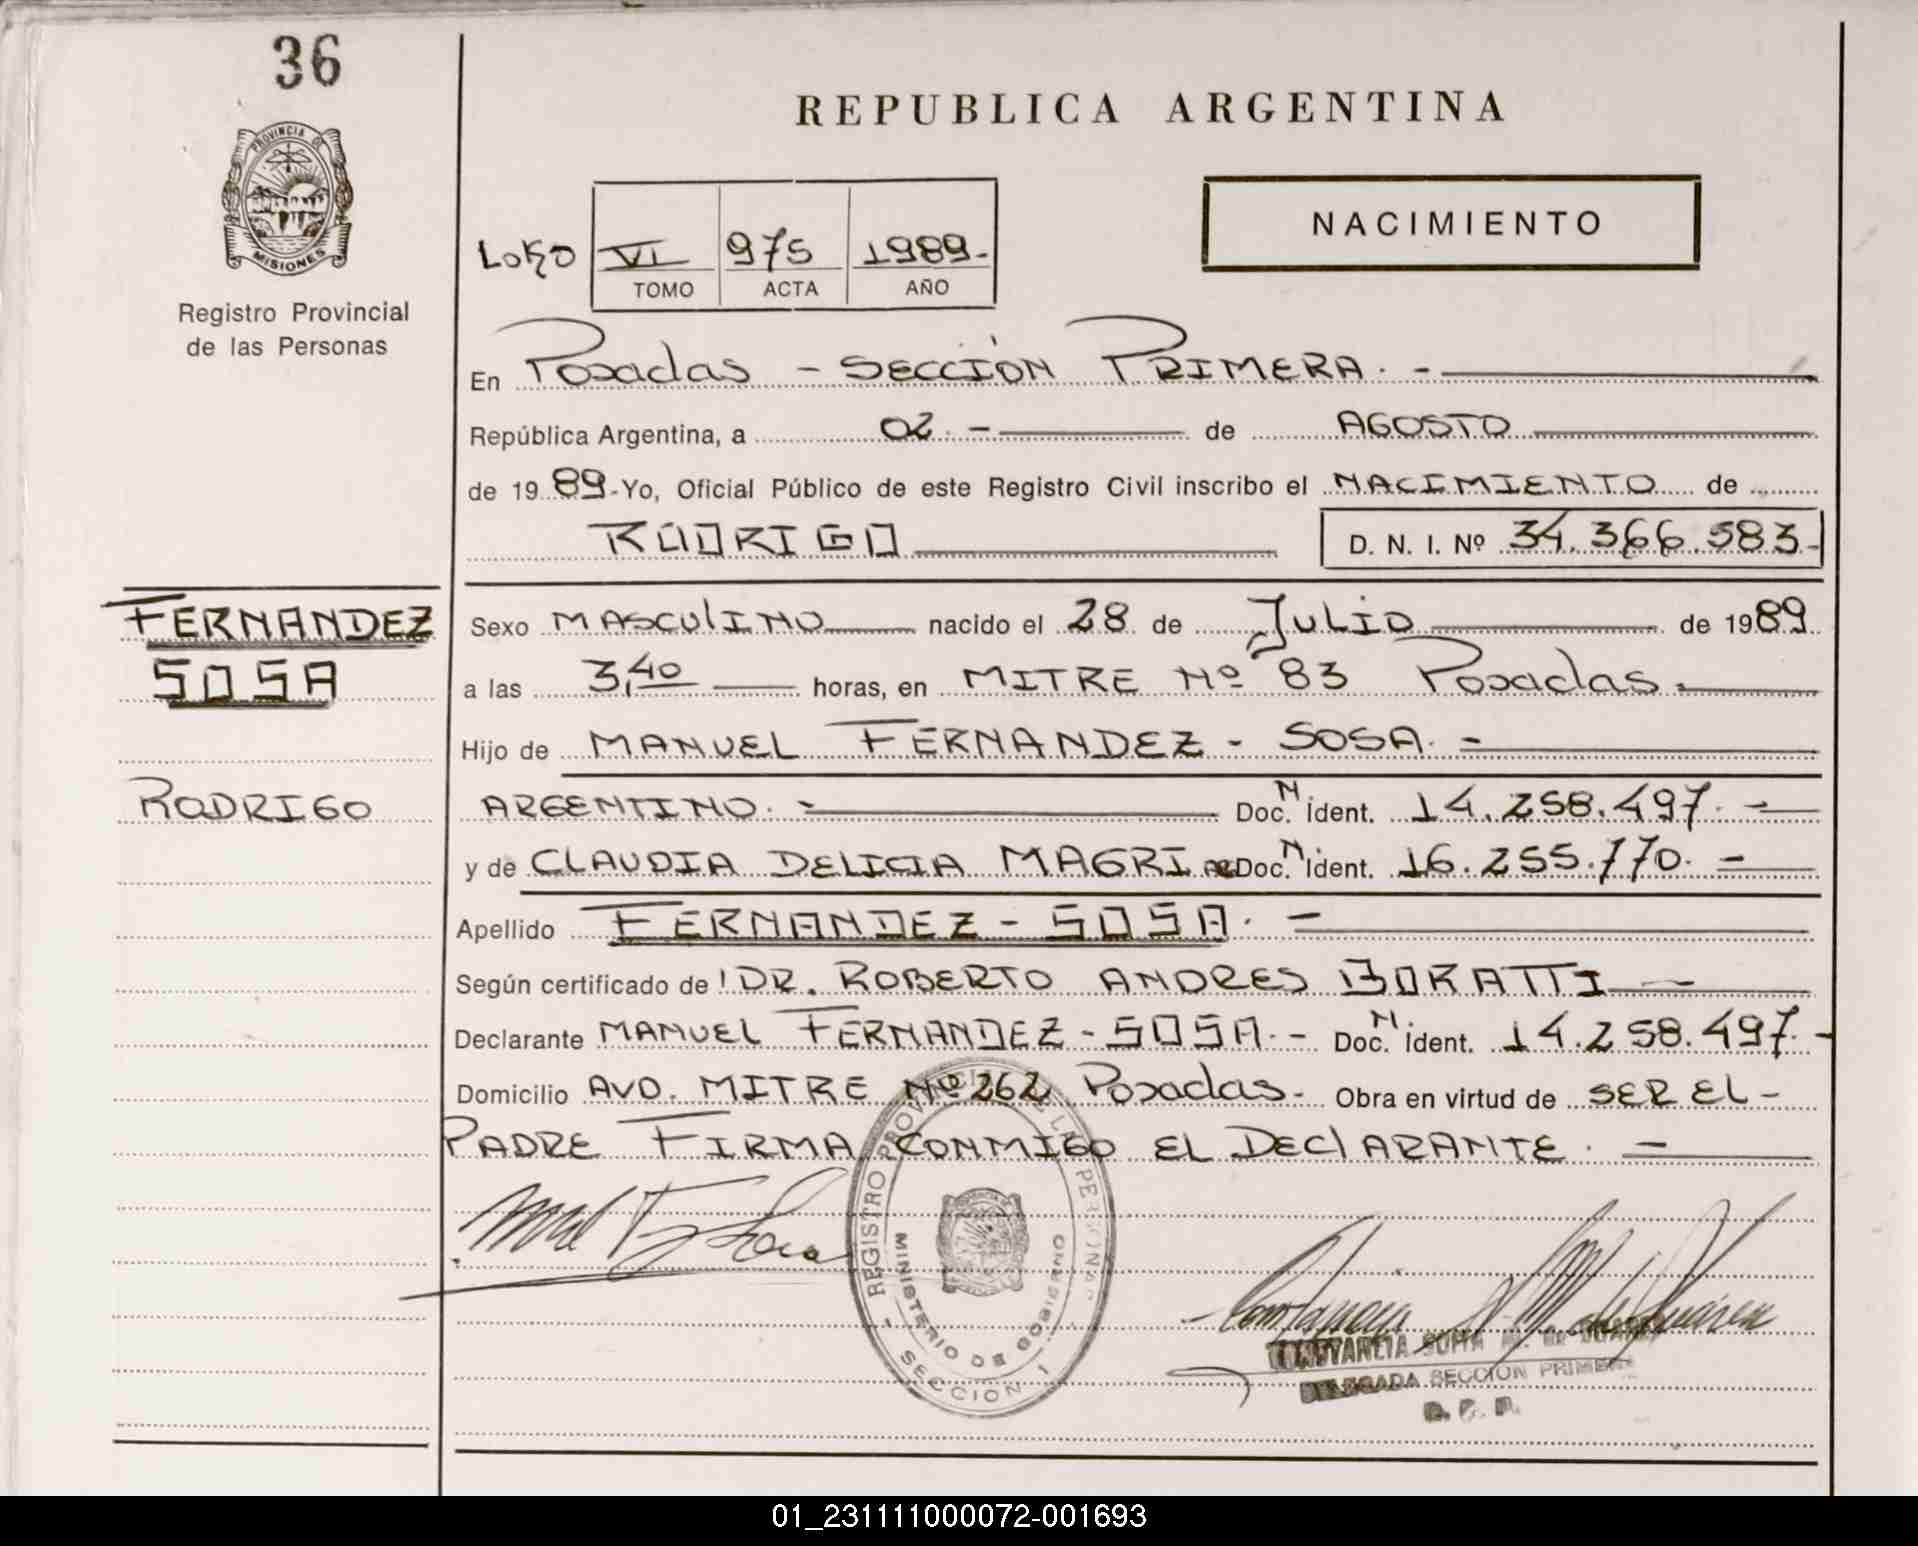 36
REPUBLICA ARGENTINA
PROVINCIA DE
MISIONES
Registro Provincial
de las Personas
NACIMIENTO
VI 975 1989-
TOMO ACTA AÑO
En Posadas - SECCIÓN PRIMERA. -
República Argentina, a 02. - de AGOSTO
de 1989-Yo, Oficial Público de este Registro Civil inscribo el NACIMIENTO de
RODRIGO D. N. I. Nº 34.366.583-
FERNANDEZ
SOSA
RODRIGO
Sexo MASCULINO nacido el 28 de JULIO de 1989
a las 3,40 horas, en MITRE Nº 83 Posadas.
Hijo de MANUEL FERNANDEZ - SOSA. -
ARGENTINO. - Doc. N ident. 14.258.497. -
y de CLAUDIA DELICIA MAGRI Doc. N ident. 16.255.770. -
Apellido FERNANDEZ - SOSA. -
Según certificado de DR. ROBERTO ANDRES BORATTI
Declarante MANUEL FERNANDEZ - SOSA. - Doc. N ident. 14.258.497. -
Domicilio AVD. MITRE Nº 262 Posadas- Obra en virtud de SER EL -
PADRE FIRMA CONMIGO EL DEClARANTE. -
REGISTRO PROVINCIAL DE LAS PERSONAS
MINISTERIO DE GOBIERNO
- SECCION 1
CONSTANCIA SOFIA M. DE
DELEGADA SECCION PRIMERA
01_231111000072-001693